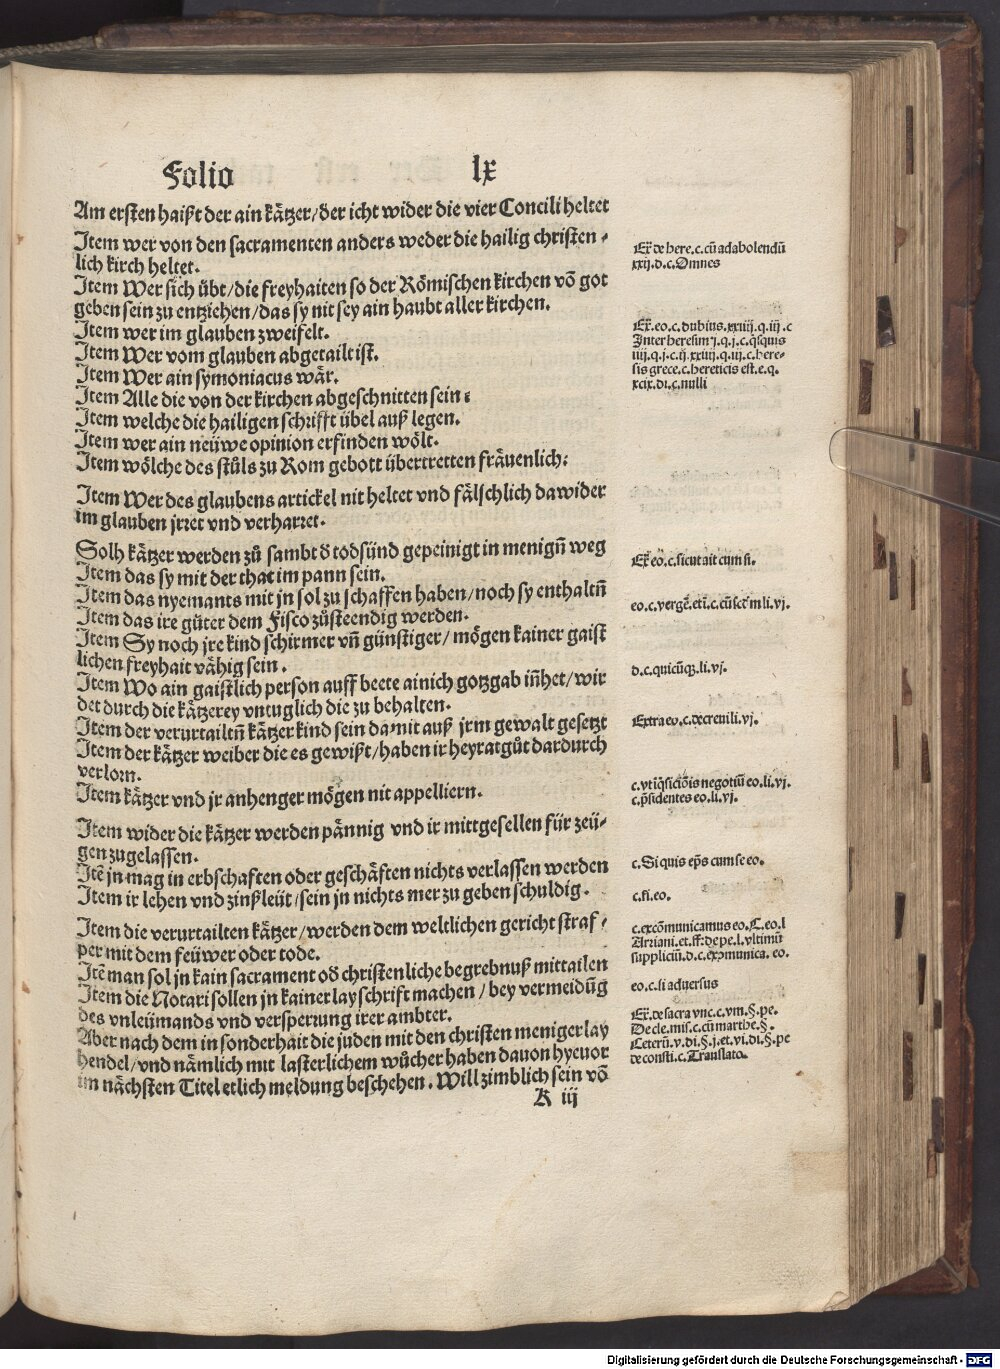 Folio lx
Am ersten haißt der ain kätzer/ d̕er icht wider die vier Concili heltet
Item wer von den sacramenten anders weder die hailig christen-
lich kirch heltet.
Item Wer sich übt/ die freyhaiten so der Römischen kirchen võ got
geben sein zu entziehen/ das sy nit sey ain haubt aller kirchen.
Item wer im glauben zweifelt.
Item Wer vom glauben abgetailt ist.
Item Wer ain symoniacus wär.
Item Alle die von der kirchen abgeschnitten sein:
Item welche die hailigen schrifft übel auß legen.
Item wer ain neüwe opinion erfinden wölt.
Item wölche des stůls zu Rom gebott übertretten fräuenlich:
Item Wer des glaubens artickel nit heltet vnd fälschlich dawider
im glauben jrret vnd verharret.
Solh kätzer werden zů sambt d̕ todsünd gepeinigt in menign̄ weg
Item das sy mit der that im pann sein.
Item das nyemants mit jn sol zu schaffen haben/ noch sy enthaltn̄
Item das ire güter dem Fisco zůsteendig werden.
Item Sy noch jre kind schirmer vn̄ günstiger/ mögen kainer gaist
lichen freyhait vähig sein.
Item Wo ain gaistlich person auff beete ainich gotzgab in̄het/ wir
det durch die kätzerey vntuglich die zu behalten.
Item der verurtailtn̄ kätzer kind sein damit auß jrm gewalt gesetzt
Item der kätzer weiber die es gewißt/ haben ir heyratgůt dardurch
verlorn.
Item kätzer vnd jr anhenger mögen nit appelliern.
Item wider die kätzer werden pännig vnd ir mittgesellen für zeü-
gen zugelassen.
Itē jn mag in erbschaften oder geschäften nichts verlassen werden
Item ir lehen vnd zinßleüt/ sein jn nichts mer zu geben schuldig.
Item die verurtailten kätzer/ werden dem weltlichen gericht straf-
per mit dem feüwer oder tode.
Itē man sol jn kain sacrament od̕ christenliche begrebnuß mittailen
Item die Notari sollen jn kainerlay schrift machen/ bey vermeidūg
des vnleümands vnd versperrung irer ambter.
Aber nach dem in sonderhait die juden mit den christen menigerlay
hendel/ vnd nämlich mit lasterlichem wůcher haben dauon hyeuor
im nächsten Titel etlich meldung beschehen. Will zimblich sein võ
K iij
Ex̄ de here.c.cū ad abolendū
xxij.d.c.Omnes
Ex̄.eo.c.dubius.xxiiij.q.iij.c
Inter heresim j.q.j.c.q̄squis
iiij.q.j.c.ij.xxiiij.q.iij.c.here-
sis grece.c.hereticis est.e.q.
xcix.di.c.nulli
Ex̄ eo.c.sicut ait cum si.
eo.c. li.vj.
d.c.quicūq3.li.vj.
Extra eo.c.decreuili.vj.
c.vt īq̄sicōis negotiū eo.li.vj.
c.p̄sidentes eo.li.vj.
c.Si quis ep̄s cum se eo.
c.fi.eo.
c.excōmunicamus eo.C.eo.l
Arriani.et.ff:de pe.l.vltimū
suppliciū.d.c.excomunica. eo.
eo.c.si aduersus
Ex̄.de sacra vnc.c.vm.§.pe.
De cle.mis.c.cū marthe.§.
Ceterū.v.di.§.j.et.vi.di.§.pe
de consti.c.Translato.
Digitalisierung gefördert durch die Deutsche Forschungsgemeinschaft - DFG